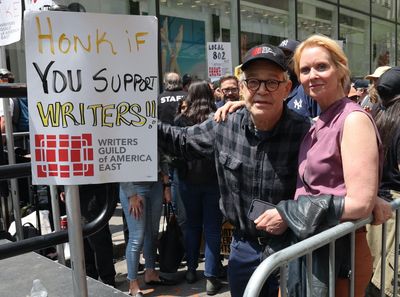 HONK iF
YOU SUPPORT
WRITERS!!
WRITERS
GUILD
of AMERICA
EAST
LOCAL 802
STAFF